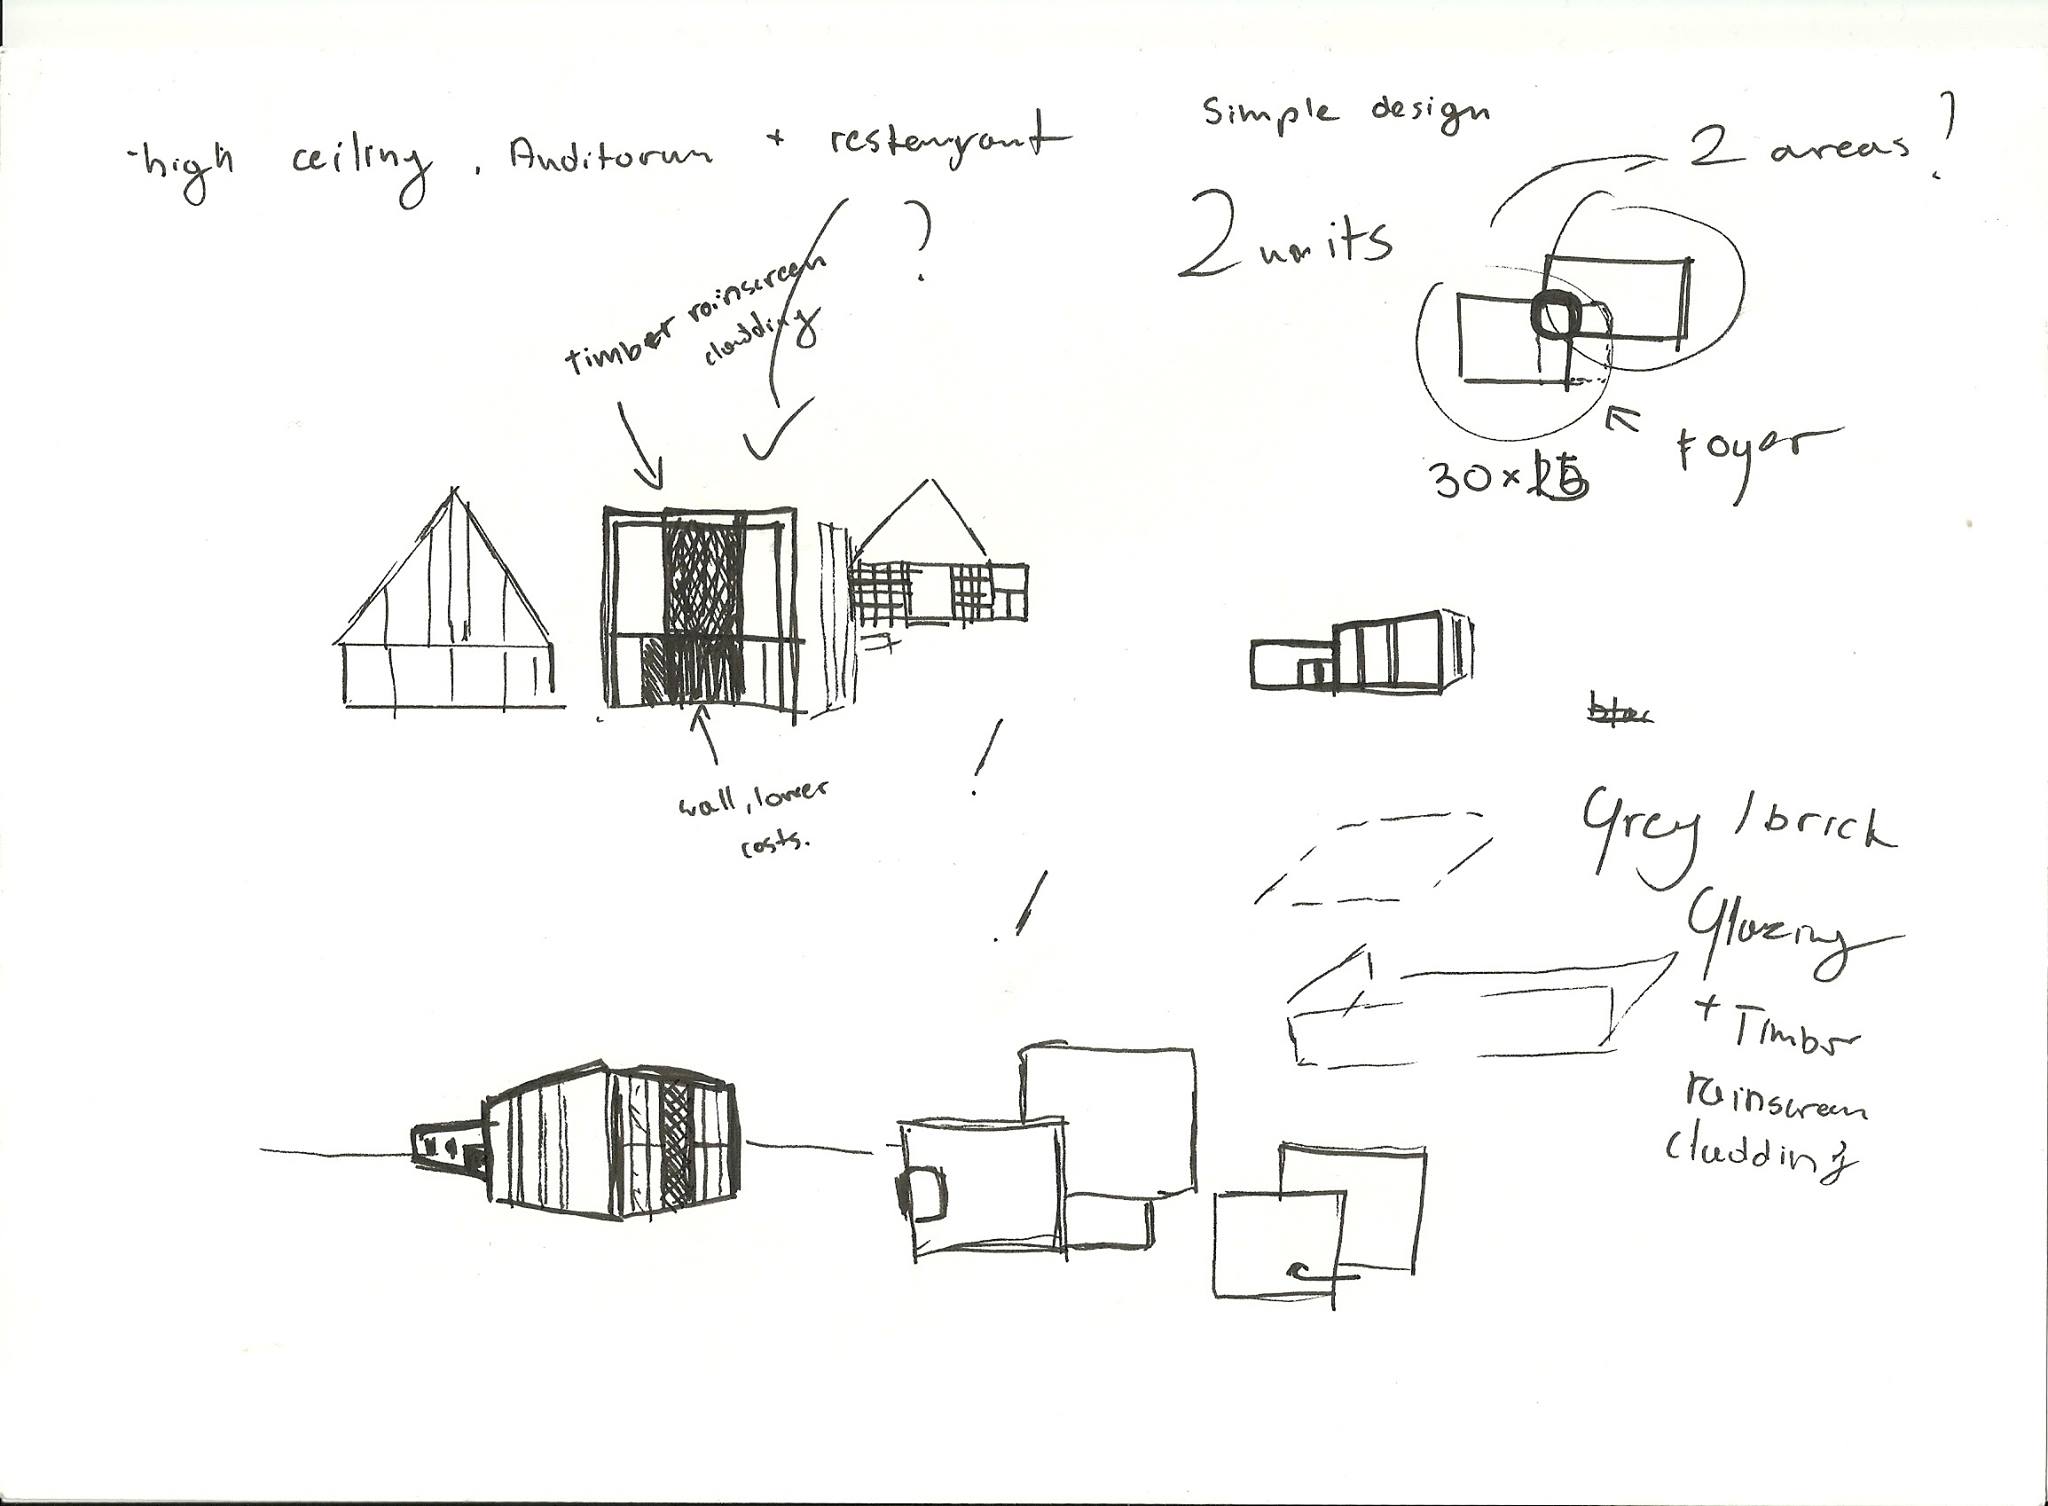 -high ceiling, Auditorum + restenyrant
?
timber rainscreen
cladding
wall, lower
costs.
!
!
Simple design
2 areas?
2 units
foyer
30 ×
Grey / brick
Glazing
+ Timber
rainscreen
cladding